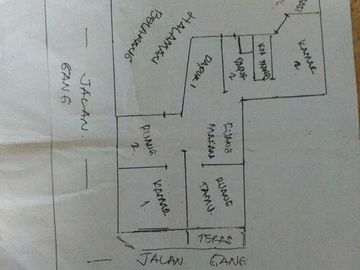 HALAMAN
BELAKANG
DAPUR 1
DAPUR
2
KM
KAMAR
2
JALAN
GANG
RUANG
2
RUANG
MAKAN
KAMAR
1
RUANG
TAMU
TERAS
JALAN GANG